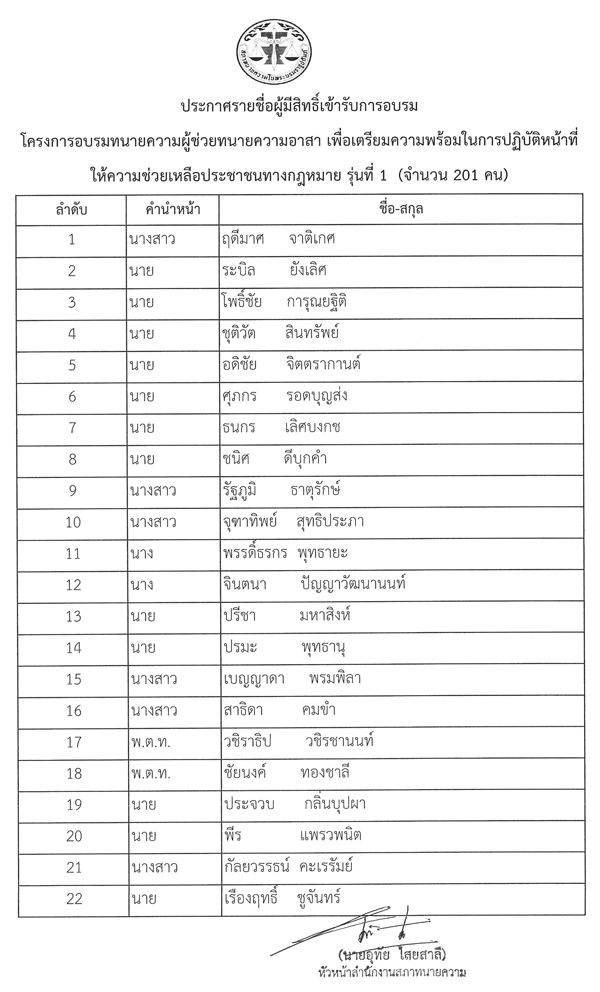 สภาทนายความในพระบรมราชูปถัมภ์
ประกาศรายชื่อผู้มีสิทธิ์เข้ารับการอบรม
โครงการอบรมทนายความผู้ช่วยทนายความอาสา เพื่อเตรียมความพร้อมในการปฏิบัติหน้าที่
ให้ความช่วยเหลือประชาชนทางกฎหมาย รุ่นที่ 1 (จำนวน 201 คน)
ลำดับ คำนำหน้า ชื่อ-สกุล
1 นางสาว ฤดีมาศ จาติเกศ
2 นาย ระบิล ยังเลิศ
3 นาย โพธิ์ชัย การุณยฐิติ
4 นาย ชุติวัต สินทรัพย์
5 นาย อดิชัย จิตตรากานต์
6 นาย ศุภกร รอดบุญส่ง
7 นาย ธนกร เลิศบงกช
8 นาย ชนิศ ดีบุกคำ
9 นางสาว รัฐภูมิ ธาตุรักษ์
10 นางสาว จุฑาทิพย์ สุทธิประภา
11 นาง พรรดิ์ธรกร พุทธายะ
12 นาง จินตนา ปัญญาวัฒนานนท์
13 นาย ปรีชา มหาสิงห์
14 นาย ปรมะ พุทธานุ
15 นางสาว เบญญาดา พรมพิลา
16 นางสาว สาธิดา คมขำ
17 พ.ต.ท. วชิราธิป วชิรชานนท์
18 พ.ต.ท. ชัยนงค์ ทองชาลี
19 นาย ประจวบ กลิ่นบุปผา
20 นาย พีร แพรวพนิต
21 นางสาว กัลยวรรธน์ คะเรรัมย์
22 นาย เรืองฤทธิ์ ชูจันทร์
(นายอุทัย ไสยสาลี)
หัวหน้าสำนักงานสภาทนายความ